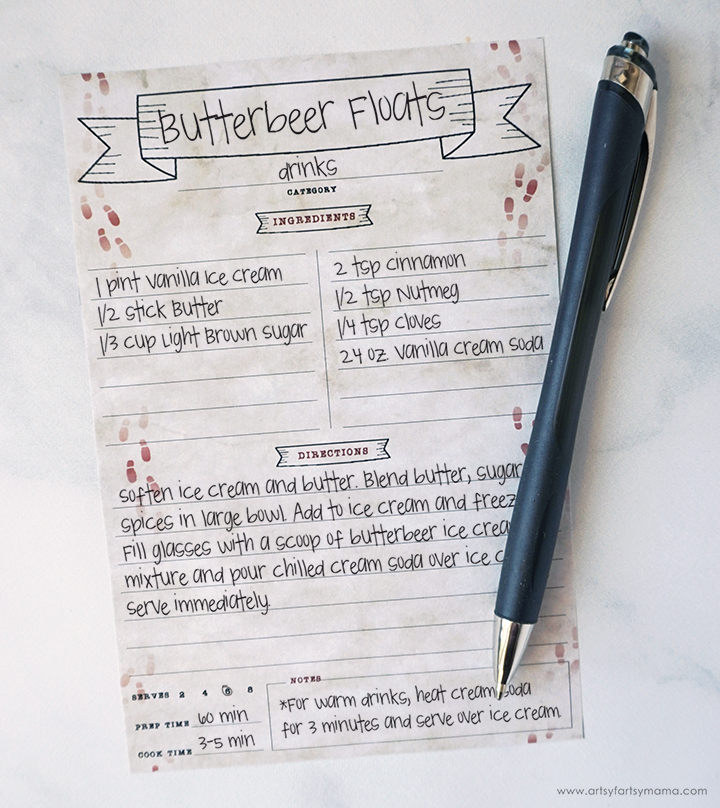 Butterbeer Floats
drinks
CATEGORY
INGREDIENTS
1 pint vanilla ice cream
1/2 stick Butter
1/3 cup Light Brown Sugar
2 tsp cinnamon
1/2 tsp Nutmeg
1/4 tsp cloves
24 oz. vanilla cream soda
DIRECTIONS
soften ice cream and butter. Blend butter, sugar
spices in large bowl. Add to ice cream and freez
Fill glasses with a scoop of butterbeer ice crea
mixture and pour chilled cream soda over ice c
serve immediately.
SERVES 2 4 6 8
PREP TIME 60 min
COOK TIME 3-5 min
NOTES
*For warm drinks, heat cream soda
for 3 minutes and serve over ice cream.
www.artsyfartsymama.com